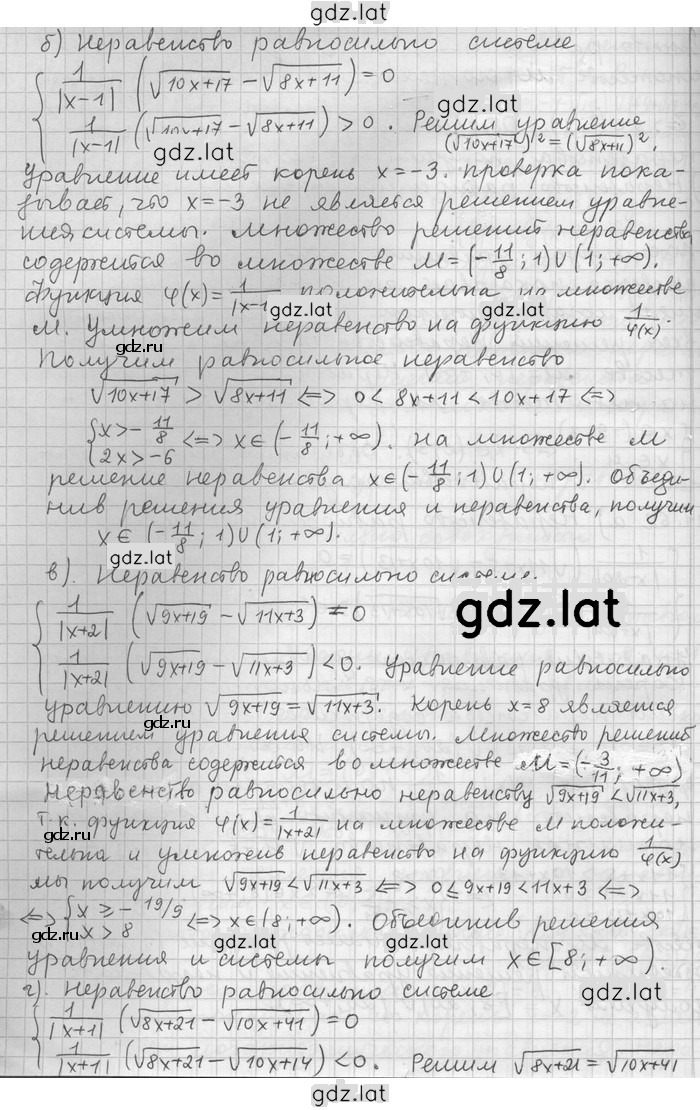 gdz.lat
б) Неравенство равносильно системе
{ 1/|x-1| (√10x+17 - √8x+11) = 0
gdz.lat
1/|x-1| (√10x+17 - √8x+11) > 0. Решим уравнение
gdz.lat (√10x+17)² = (√8x+11)².
Уравнение имеет корень x = -3. проверка пока-
зывает, что x = -3 не является решением уравне-
ния системы. множество решений неравенства
содержится во множестве M = (-11/8; 1) ∪ (1; +∞).
Функция φ(x) = 1/|x-1| положительна на множестве
gdz.lat
M. Умножим неравенство на функцию 1/φ(x).
gdz.ru
Получим равносильное неравенство
√10x+17 > √8x+11 <=> 0 < 8x+11 < 10x+17 <=>
{ x > -11/8
2x > -6 <=> x ∈ (-11/8; +∞). на множестве M
решение неравенства x ∈ (-11/8; 1) ∪ (1; +∞). Объеди-
нив решения уравнения и неравенства, получим
x ∈ (-11/8; 1) ∪ (1; +∞).
gdz.lat
в). Неравенство равносильно системе.
{ 1/|x+2| (√9x+19 - √11x+3) = 0
gdz.lat
1/|x+2| (√9x+19 - √11x+3) < 0. Уравнение равносильно
уравнению √9x+19 = √11x+3. Корень x = 8 является
gdz.ru
решением уравнения системы. Множество решений
неравенства содержится во множестве M = (-3/11; +∞)
Неравенство равносильно неравенству √9x+19 < √11x+3,
gdz.lat
т.к. функция φ(x) = 1/|x+2| на множестве M положи-
тельна и умножив неравенство на функцию 1/φ(x)
мы получим √9x+19 < √11x+3 <=> 0 ≤ 9x+19 < 11x+3 <=>
<=> { x ≥ -19/9
x > 8 <=> x ∈ (8; +∞). Объединив решения
gdz.ru
gdz.lat
уравнения и системы получим x ∈ [8; +∞).
г). Неравенство равносильно системе
gdz.lat
{ 1/|x+1| (√8x+21 - √10x+41) = 0
1/|x+1| (√8x+21 - √10x+14) < 0. Решим √8x+21 = √10x+41
gdz.lat